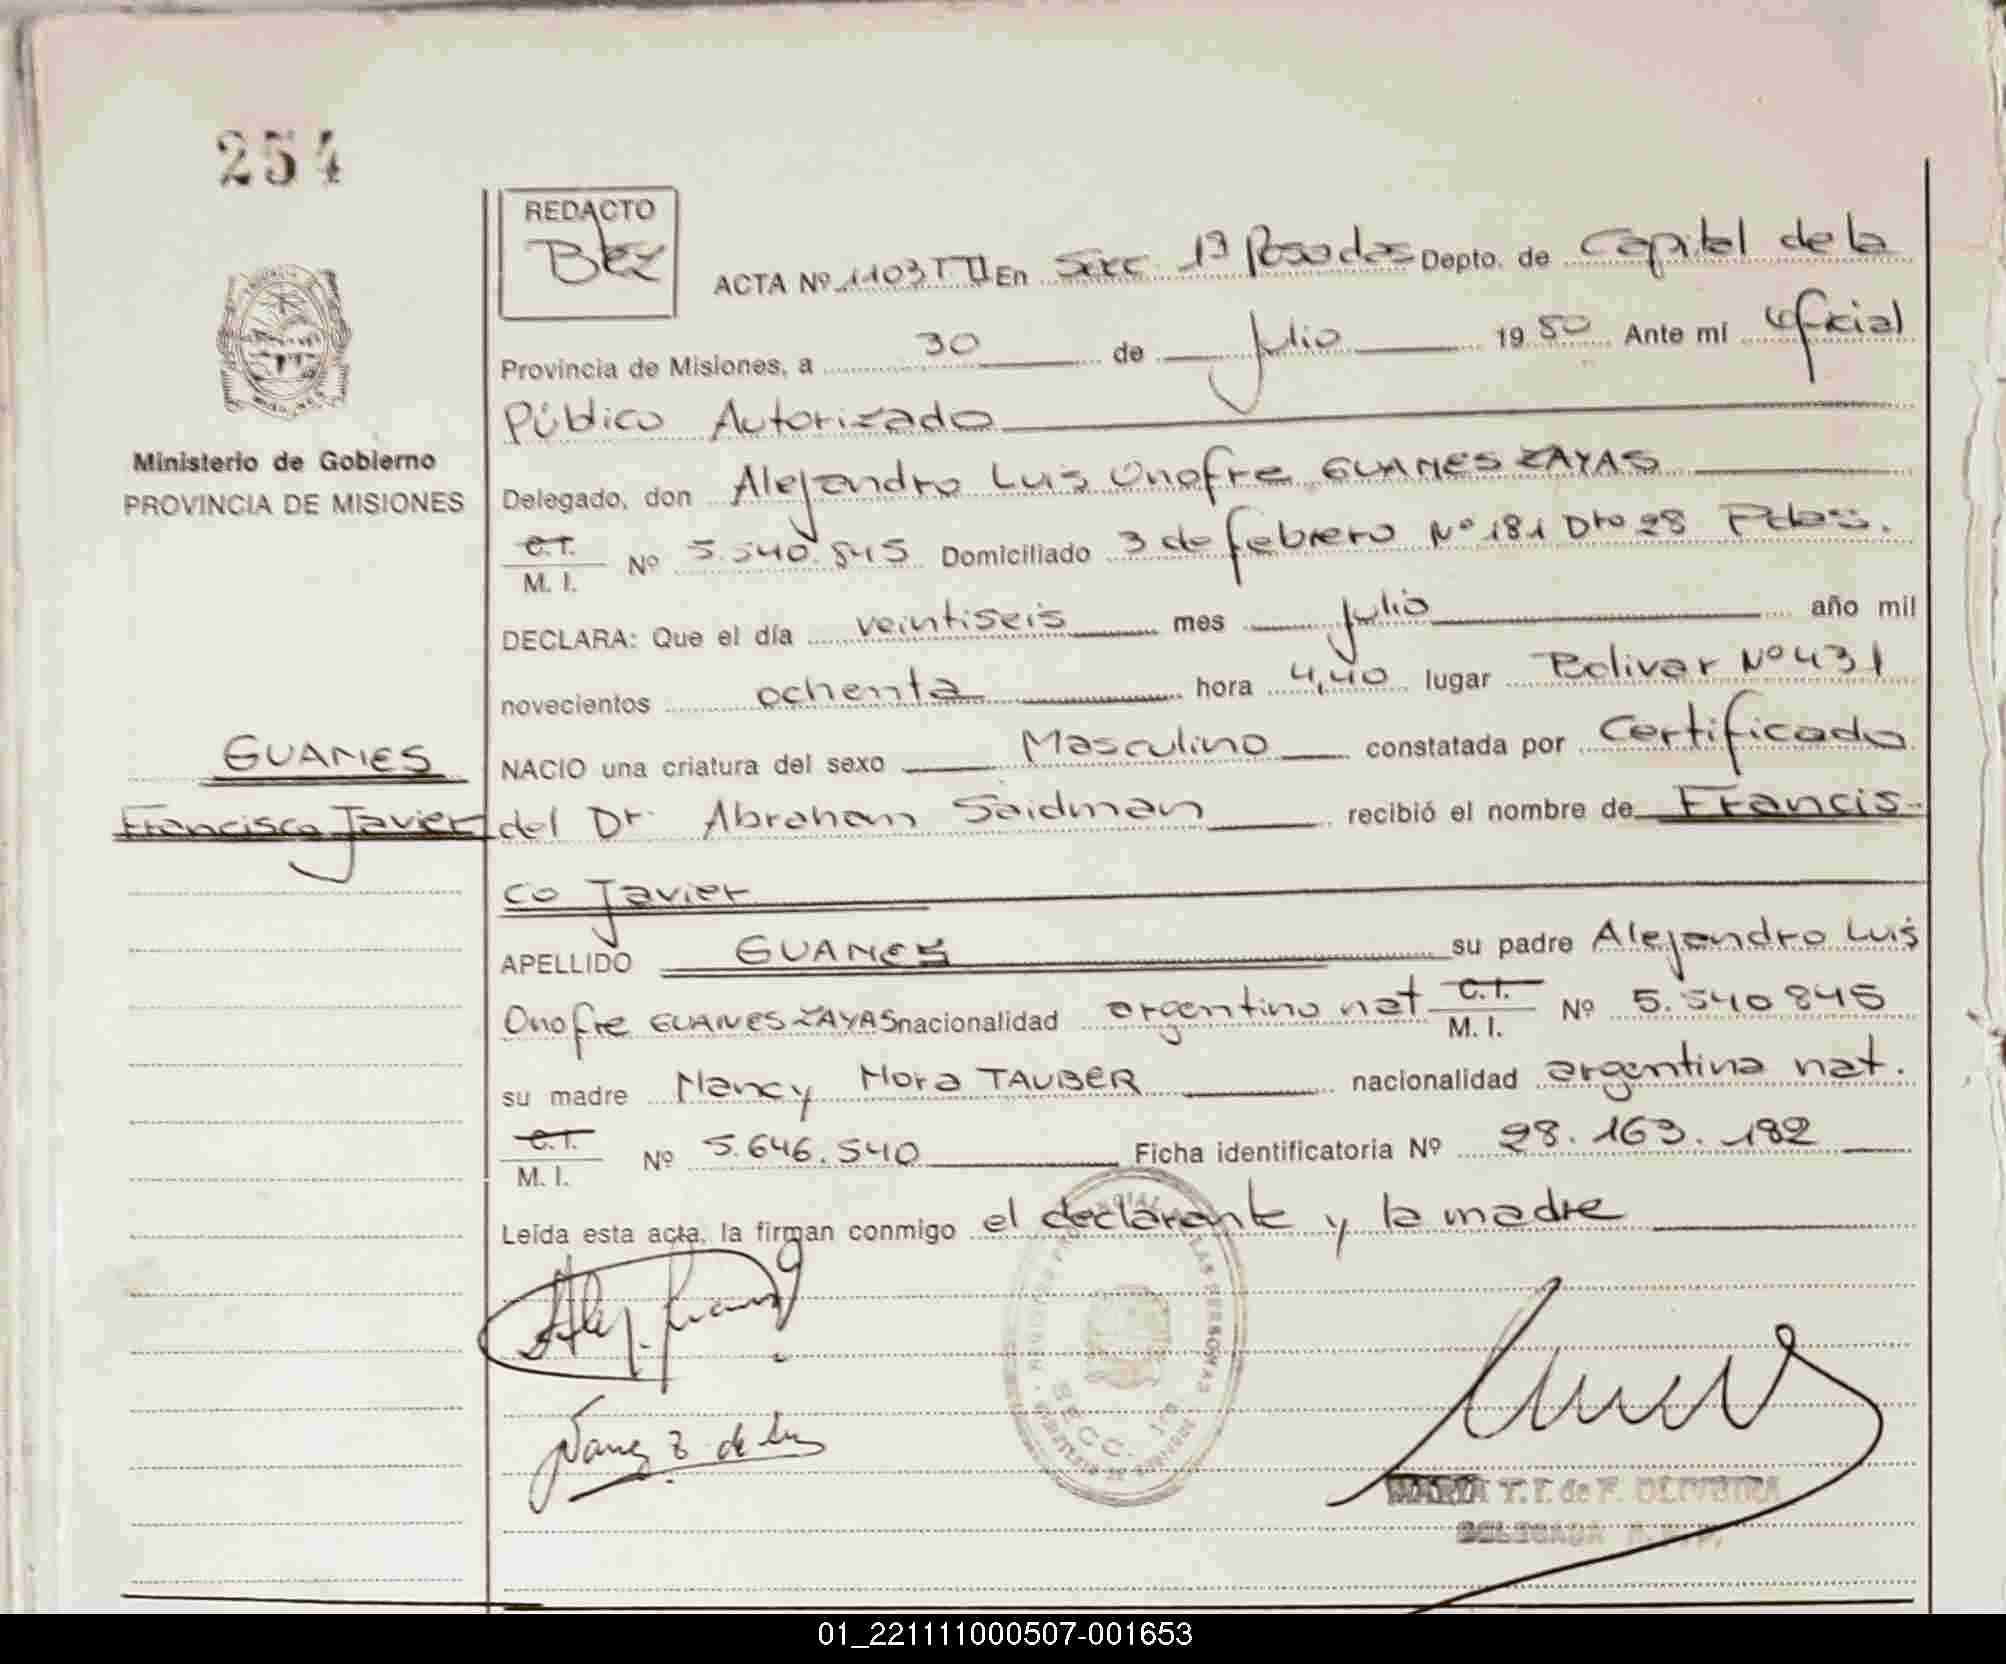 254
REDACTO
Bez
ACTA Nº 1103 T II En Secc 1ª Posadas Depto. de Capital de la
Provincia de Misiones, a 30 de Julio 1980 Ante mi Oficial
Público Autorizado
Ministerio de Gobierno
PROVINCIA DE MISIONES
Delegado, don Alejandro Luis Onofre GUANES ZAYAS
C.I.
M. I. Nº 5.540.845 Domiciliado 3 de febrero Nº 181 Dto 28 Pdas.
DECLARA: Que el día veintiseis mes Julio año mil
novecientos ochenta hora 4,40 lugar Bolivar Nº 431
GUANES
NACIO una criatura del sexo Masculino constatada por Certificado
Francisco Javier
del Dr. Abraham Saidman recibió el nombre de Francis-
co Javier
APELLIDO GUANES su padre Alejandro Luis
Onofre GUANES ZAYAS nacionalidad argentino nat C.I. M. I. Nº 5.540 845
su madre Nancy Nora TAUBER nacionalidad argentina nat.
C.I.
M. I. Nº 5.646.540 Ficha identificatoria Nº 28.163.182
Leída esta acta, la firman conmigo el declarante y la madre
LAS PERSONAS
SECC. 1ª
MARIA T. F. de F. OLIVEIRA
DELEGADA
01_221111000507-001653